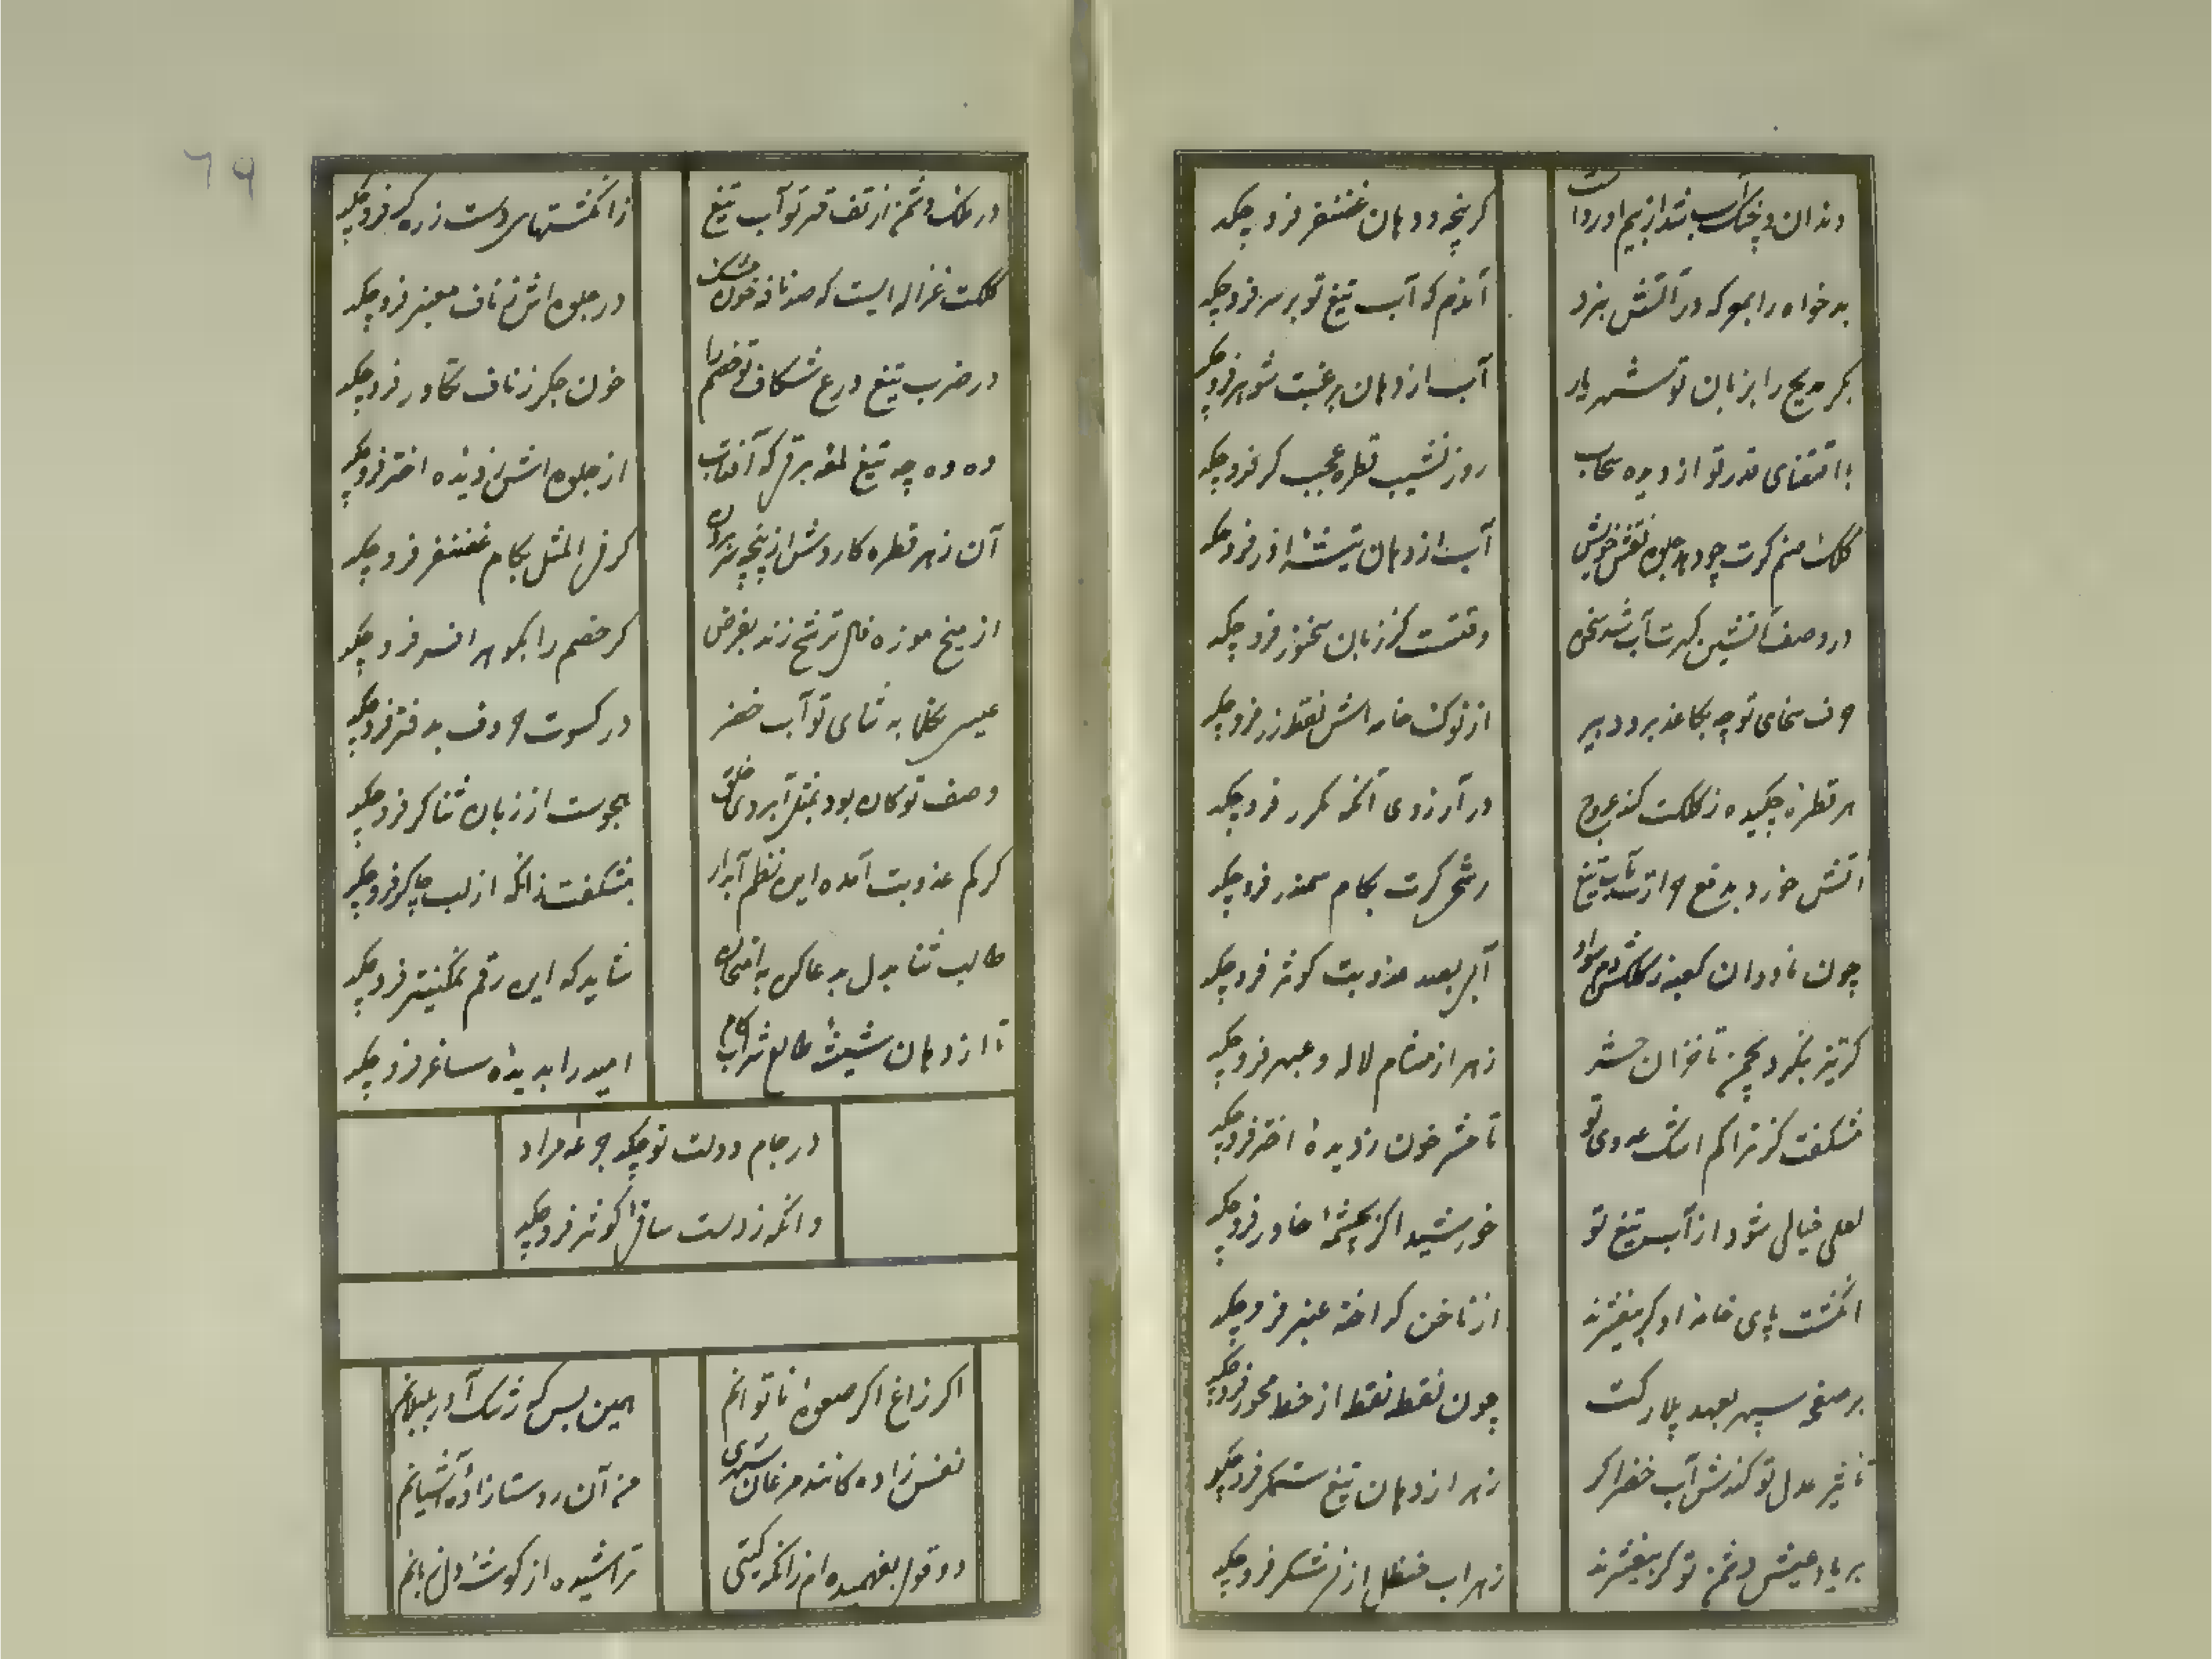 دندان و چنگ آب شد از بیم او ردا است
کز پنجه و دهان غضنفر فرو چکد
بدخواه را بمو که در آتش بزد
آندم که آب تیغ تو بر سر فرو چکد
بکر مدیح را بزبان تو شهریار
آب از دهان برغبت شوهر فرو چکد
با اقتضای قدر تو از دیده سحاب
روز نشیب قطره عجب گر فرو چکد
کلک منم کرت چو دهد جلوه نقش خویش
آب از دهان تیشه آذر فرو چکد
در وصف آب شد سخن
وقتست کز زبان سخنور فرو چکد
حرف سخای تو چه بکاغذ برد دبیر
از نوک خامه اش نقط زر فرو چکد
هر قطره چکیده ز کلکت کند عروج
در آرزوی آنکه مکرر فرو چکد
آتش خورد بدفع حرارت تیغ
رشحی گرت بکام سمندر فرو چکد
چون ناودان کعبه ز کلکش دم سواد
آبی بصد عذوبت کوثر فرو چکد
کر تیز بنگرد بچمن تا خزان حشر
زهر از مشام لاله و عبهر فرو چکد
نشکفت کز تراکم اشک عدوی تو
تا حشر خون ز دیده اختر فرو چکد
لعلی خیالی شود از آب تیغ تو
خورشید اگر بچشمه خاور فرو چکد
انگشت پای خامه او گر بیفشرند
از ناخن گداخته عنبر فرو چکد
بر صفحه سپهر بعهد پلارکت
چون نقطه نقطه از خط محور فرو چکد
تاثیر عدل تو کندش آب خضر اگر
زهر از دهان تیغ ستمگر فرو چکد
بر یاد عیش دشمن تو گر بیفشرند
زهراب حنظل از نی شکر فرو چکد
۶۹
در ملک دشمن از تف قهر تو آب تیغ
ز انگشتهای دست زره گر فرو چکد
کلکت غزاله ایست که صد نافه خون مشک
در جلوه اش ز ناف معنبر فرو چکد
در ضرب تیغ درع شکاف تو خصم را
خون جگر ز ناف تکاور فرو چکد
وه وه چه تیغ لمعه برقی که آفتاب
از جلوه اش ز دیده اختر فرو چکد
آن زهر قطره کاردش از پنجه بران
گر فی المثل بکام غضنفر فرو چکد
از میخ موزه فال ترشح زند بفرض
گر خصم را بگوهر افسر فرو چکد
عیسی تکلما به ثنای تو آب خضر
در کسوت حروف بدفتر فرو چکد
وصف تو کان بود بمثل آبروی خلق
هجوست از زبان ثناگر فرو چکد
گر کم عذوبت آمده این نظم آبدار
نشکفت زانکه از لب چاکر فرو چکد
طالب ثنا بدل بدعا کن به امتحان
شاید که این رقم نمکینتر فرو چکد
تا از دهان شیشه طالع شراب کام
امید را بدیده ساغر فرو چکد
در جام دولت تو چکد جرعه مراد
وانکه ز دست ساقی کوثر فرو چکد
اگر زاغ اگر صعوه ناتوانم
همین بس که رشک آور بلبلانم
نفس زاده کانند مرغان شهری
من آن روستا زاده آشیانم
دو قول بفهمیده ام زانکه گیتی
تراشیده از گوشه دل زبانم